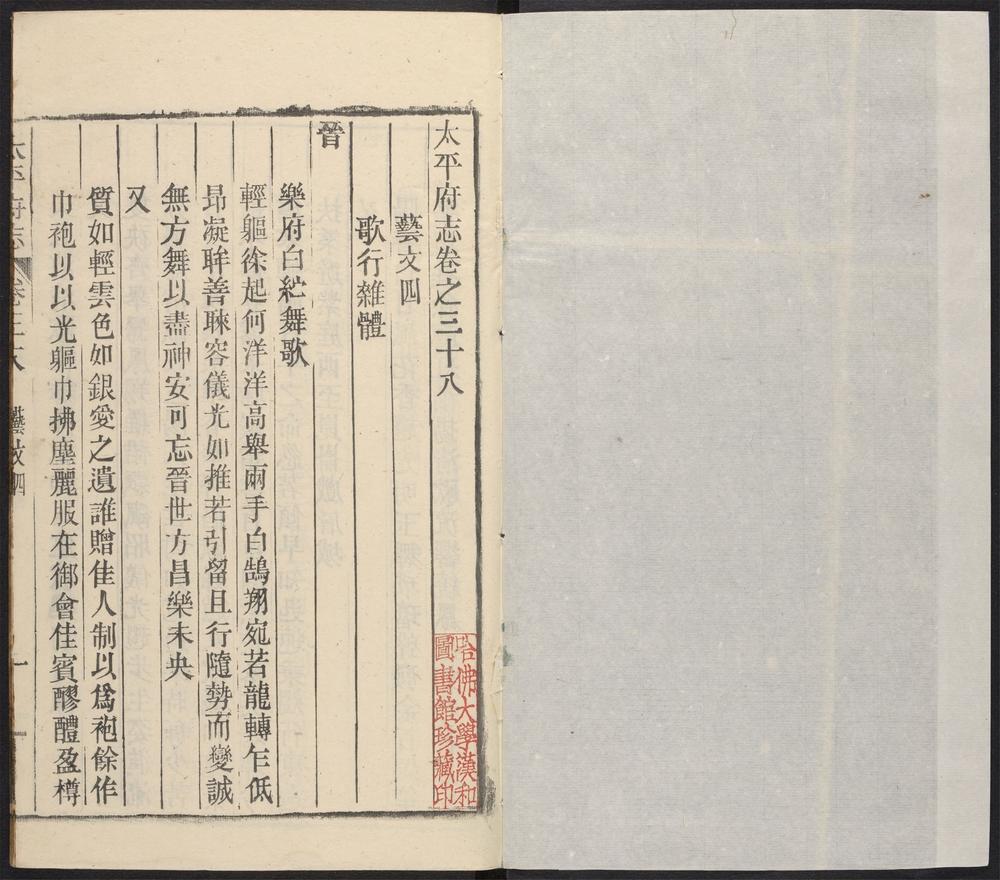 太平府志卷之三十八
藝文四
歌行雜體
晉
樂府白紵舞歌
輕軀徐起何洋洋高舉兩手白鵠翔宛若龍轉乍低
昻凝眸善睞容儀光如推若引留且行隨勢而變誠
無方舞以盡神安可忘晉世方昌樂未央
又
質如輕雲色如銀愛之遺誰贈佳人制以爲袍餘作
巾袍以以光軀巾拂塵麗服在御會佳賓醪醴盈樽
太平府志
卷三十八
藝文四
一
哈佛大學漢和
圖書館珍藏印